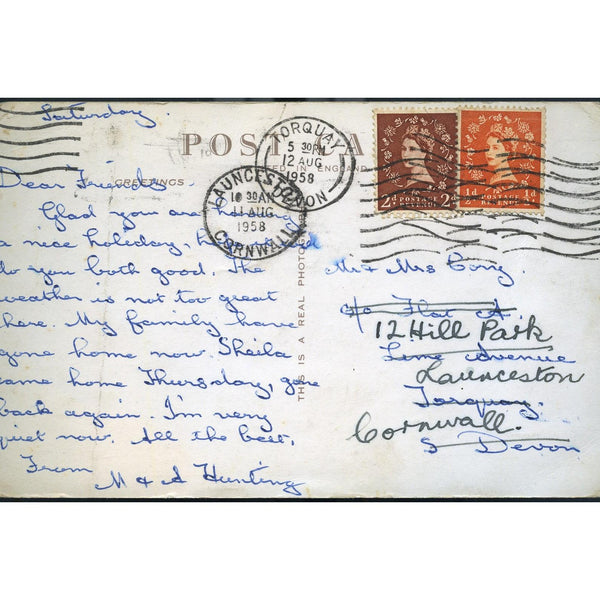 Saturday.
POST CA
GREETINGS
ED IN ENGLAND
THIS IS A REAL PHOTOG
TORQUAY
5 30 PM
12 AUG
1958
DEVON
LAUNCESTON
10 30 AM
11 AUG
1958
CORNWALL
2D POSTAGE REVENUE 2D
½d POSTAGE REVENUE ½d
Dear Friends
Glad you are having
a nice holiday,
do you both good. The
weather is not too great
here. My family have
gone home now. Sheila
came home Thursday, gone
back again. I'm very
quiet now. All the best.
From
M & A Hunting
Mr & Mrs Cory
c/o Flat A
12 Hill Park
Lime Avenue
Launceston
Torquay.
Cornwall.
S Devon